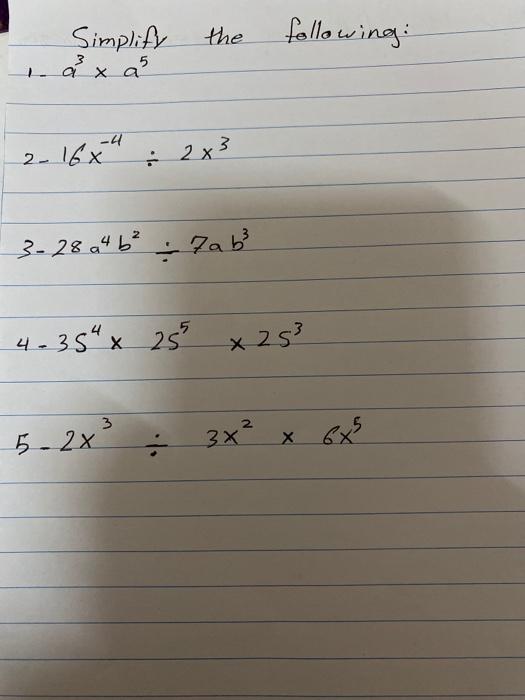 Simplify the following:
1- a³ × a⁵
2- 16x⁻⁴ ÷ 2x³
3- 28a⁴b² ÷ 7ab³
4- 3s⁴ × 2s⁵ × 2s³
5- 2x³ ÷ 3x² × 6x⁵